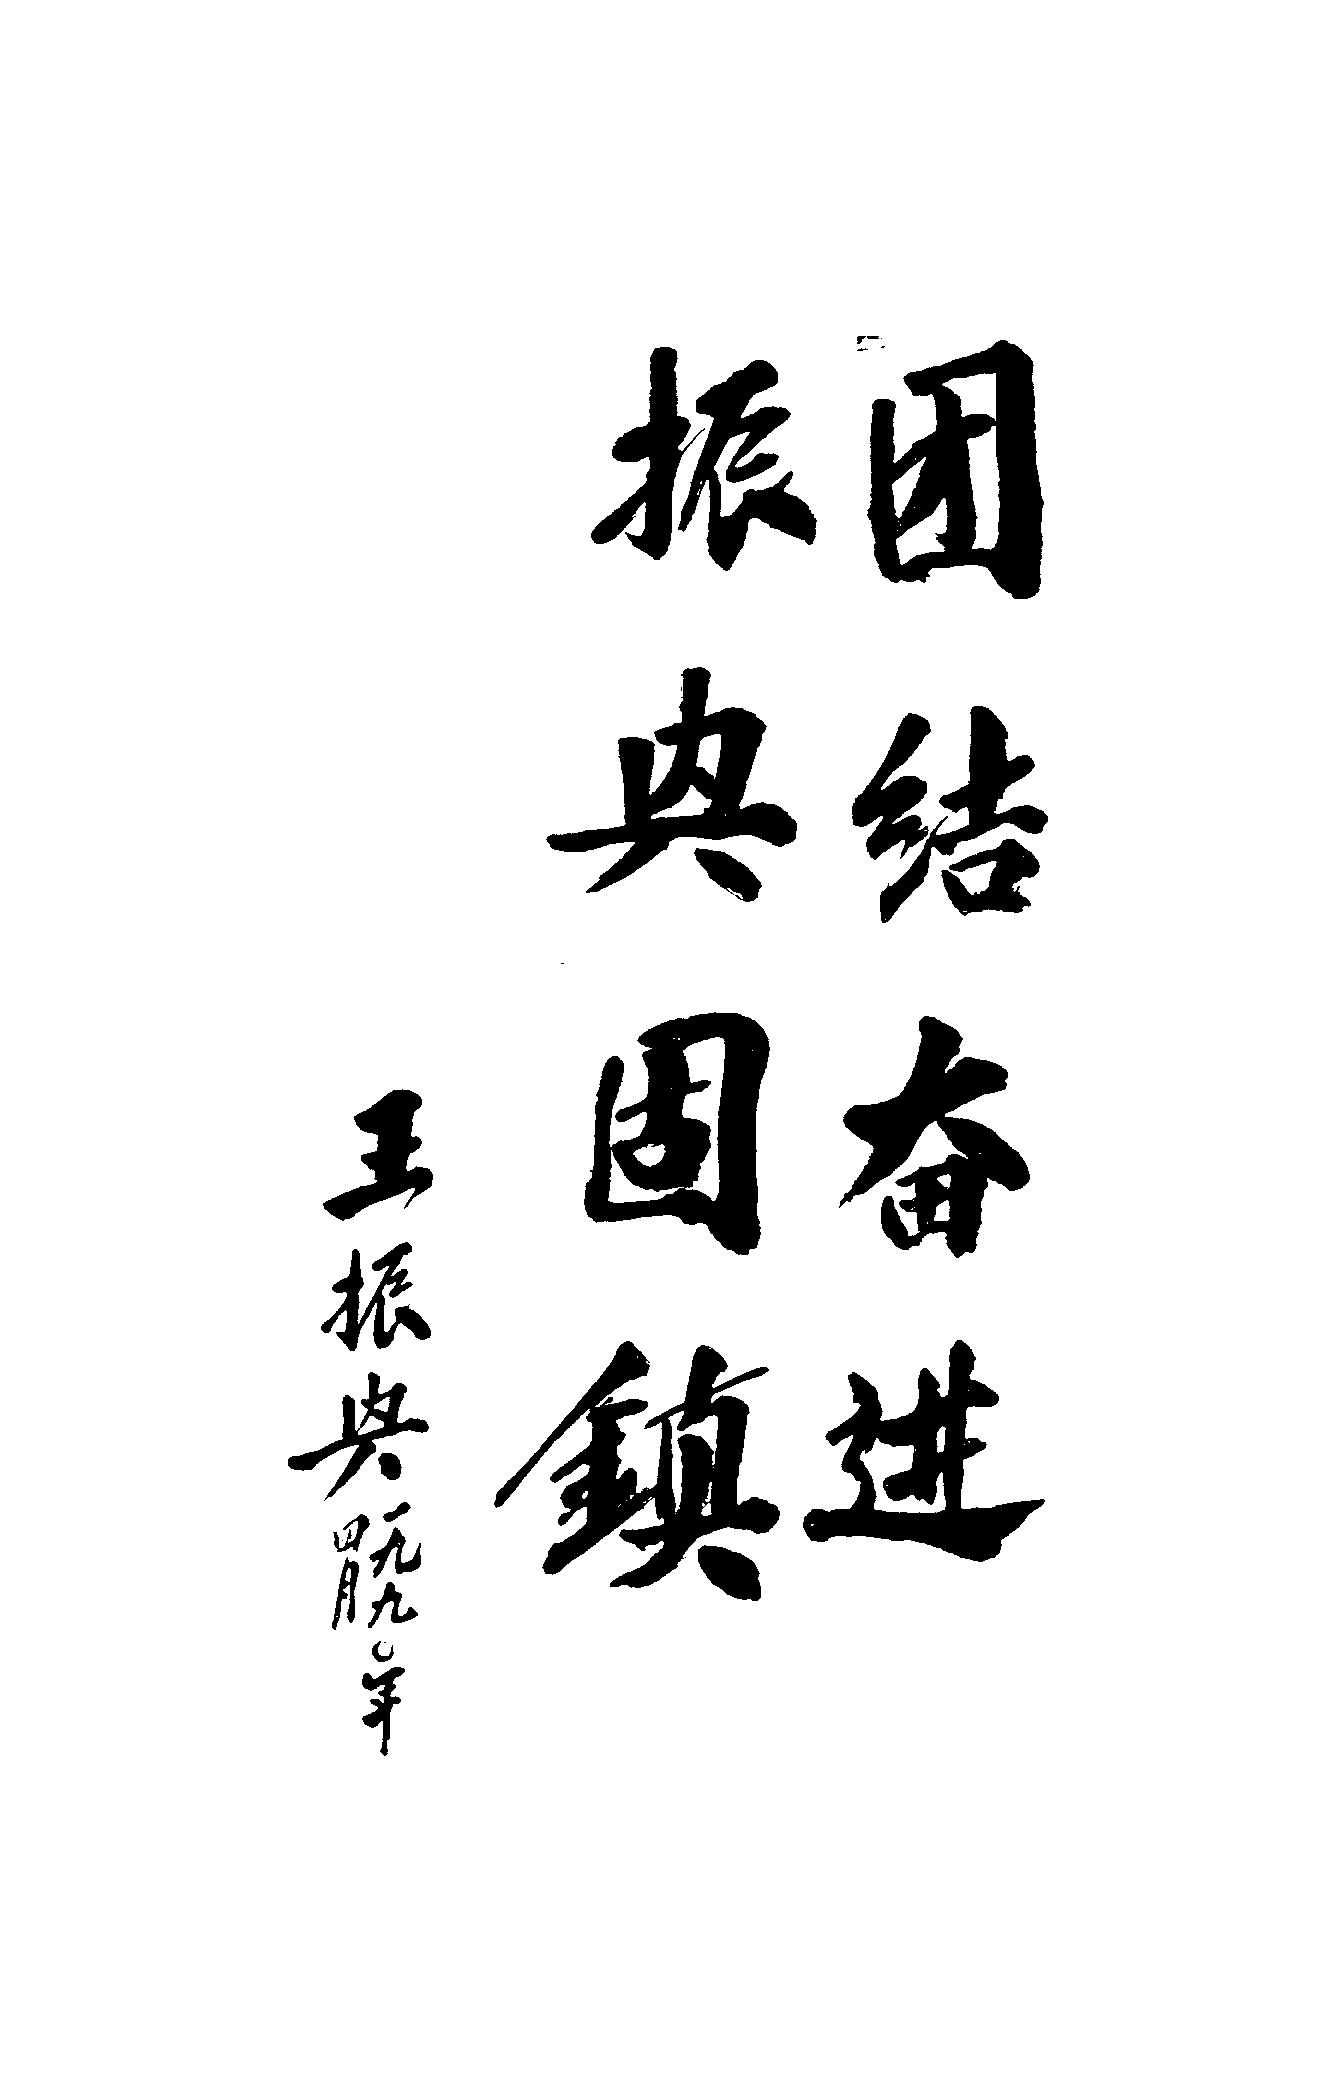 团结奋进
振興固鎮
王振興
一九九〇年
四月